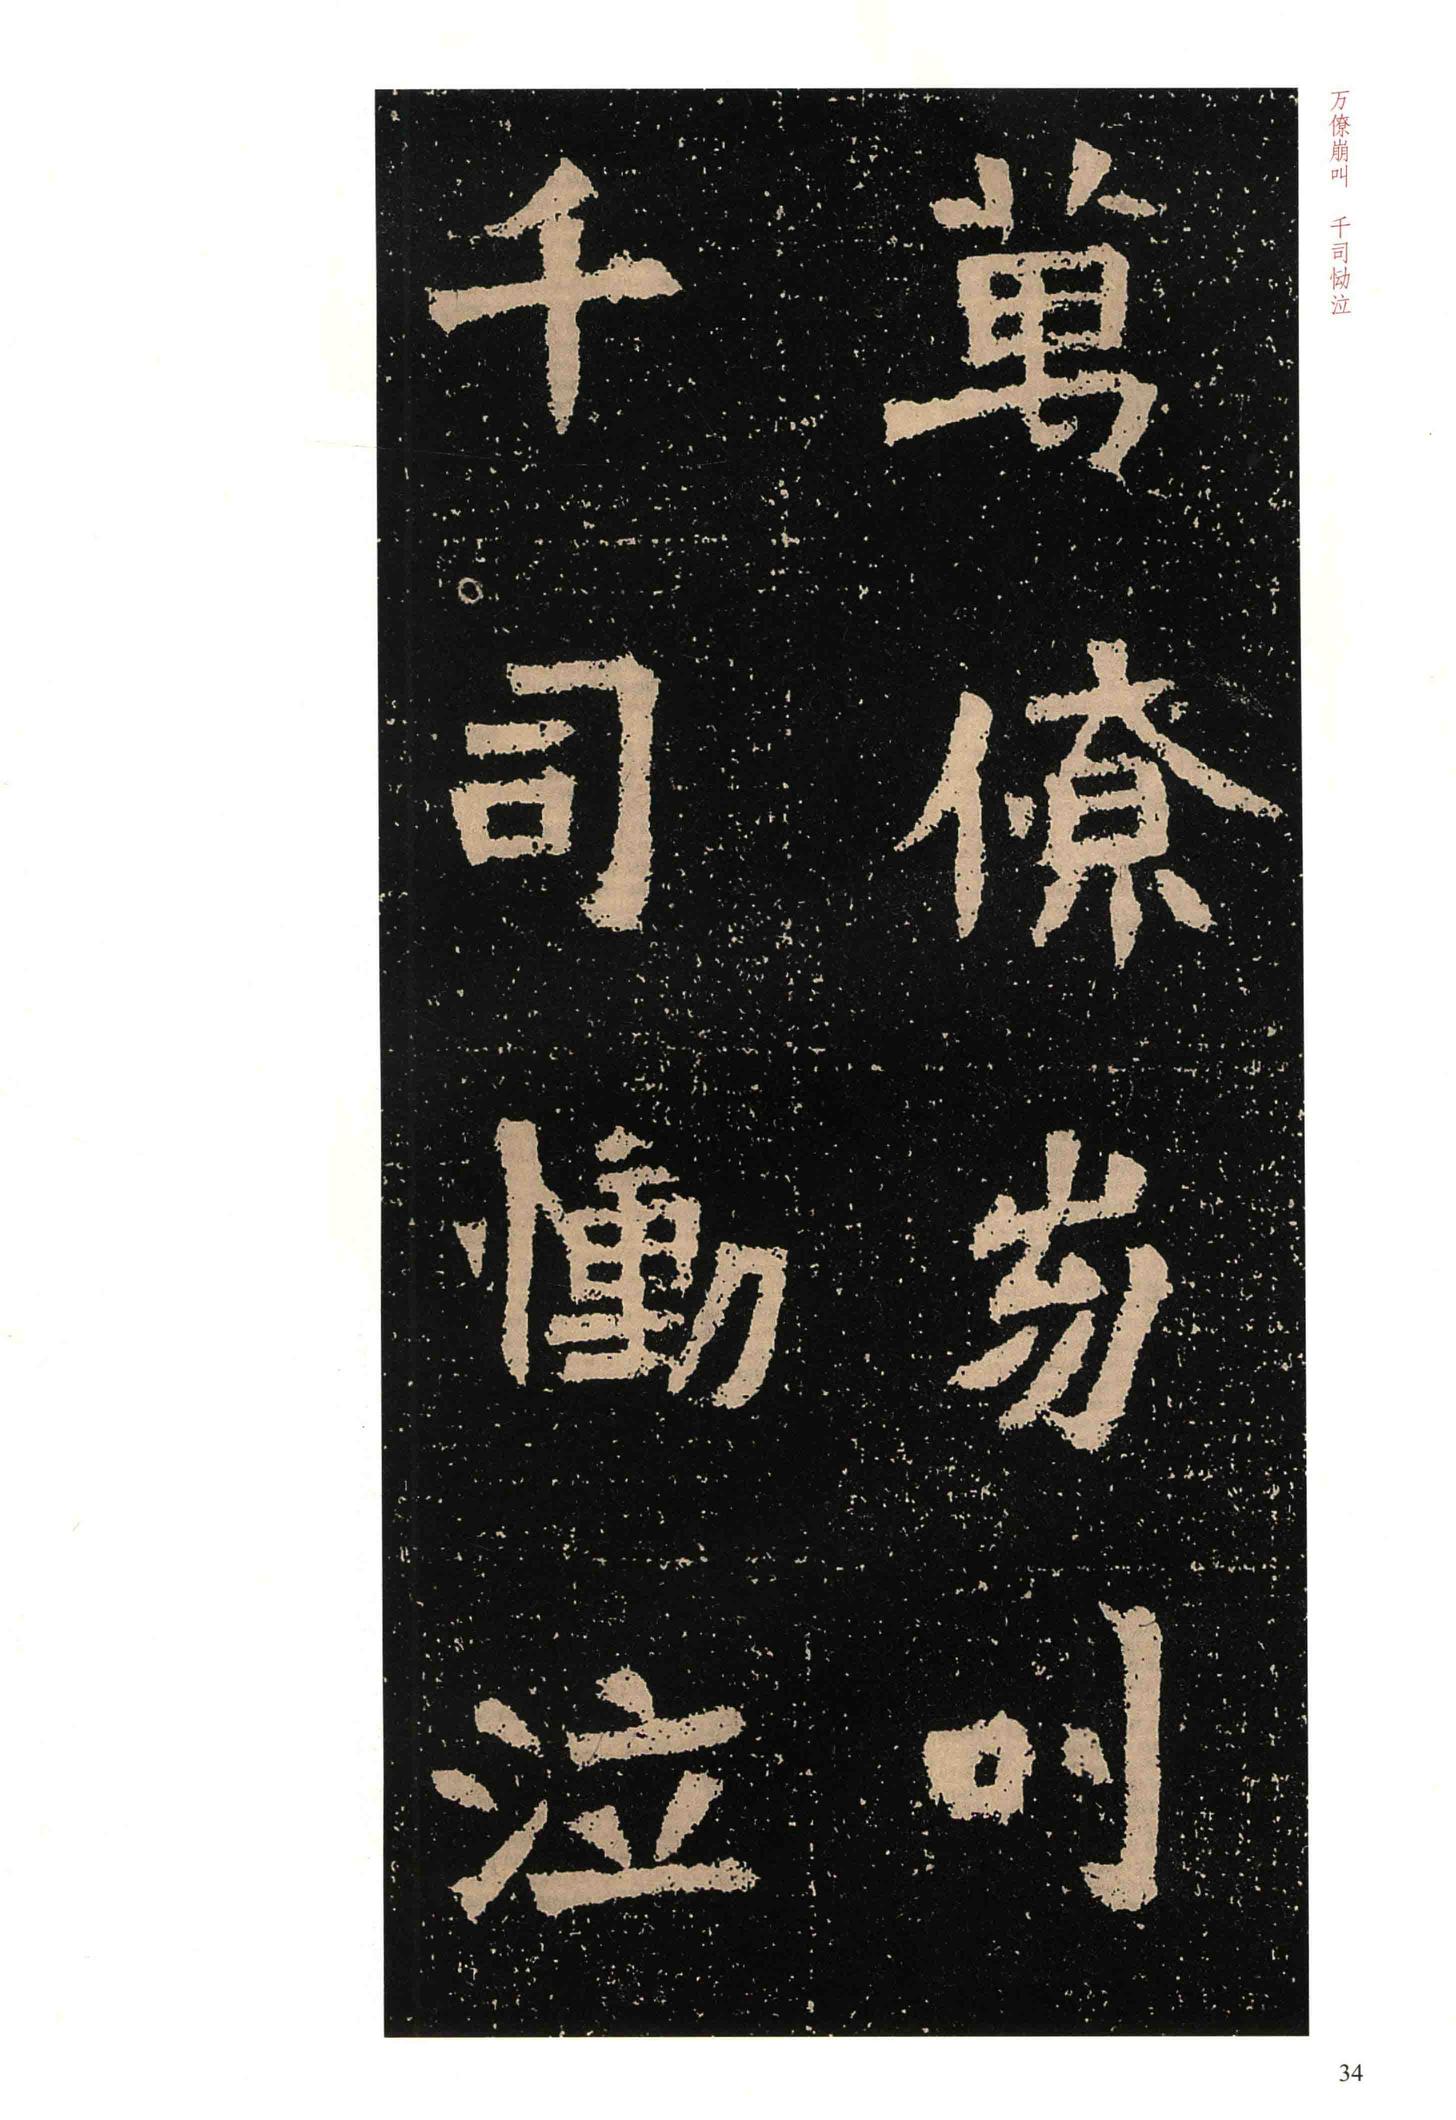 万僚崩叫　千司恸泣
萬僚崩叫
千司慟泣
34